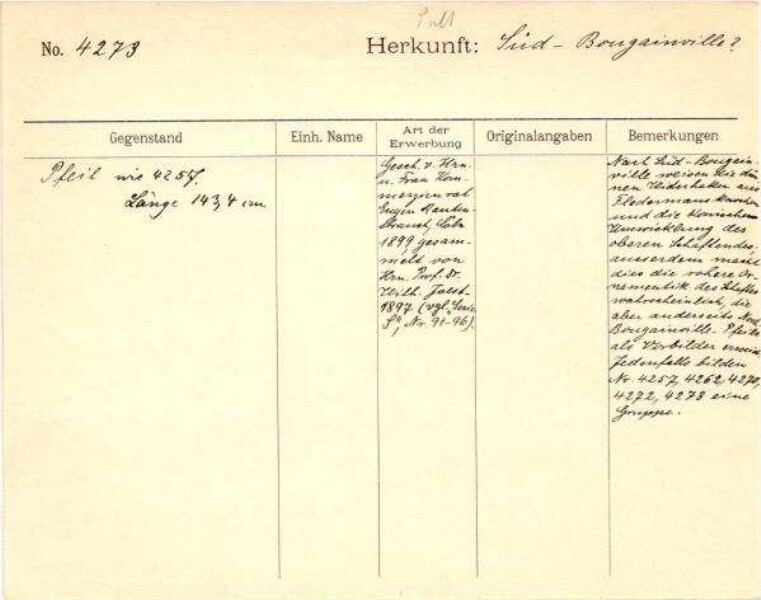 No. 4273
Herkunft: Süd - Bougainville?
Gegenstand
Einh. Name
Art der Erwerbung
Originalangaben
Bemerkungen
Pfeil wie 4257.
Länge 143,4 cm
Gesch. v. Hrn.
u. Frau Kom-
merzienrat
Eugen Rauten-
strauch, Cöln
1899 gesam-
melt von
Hrn. Prof. Dr.
Wilh. Joest
1897 (vgl. "Serie
S", Nr. 91-96).
Nach Süd-Bougain-
ville weisen die dün-
nen Widerhaken aus
Fledermausknochen
und die konischen
Umwicklung des
oberen Schaftendes,
ausserdem macht
dies die rohere Or-
namentik des Schaftes
wahrscheinlich, die
aber anderseits Nord
Bougainville-Pfeile
als Vorbilder
Jedenfalls bilden
Nr. 4257, 4262, 4270,
4272, 4273 eine
Gruppe.